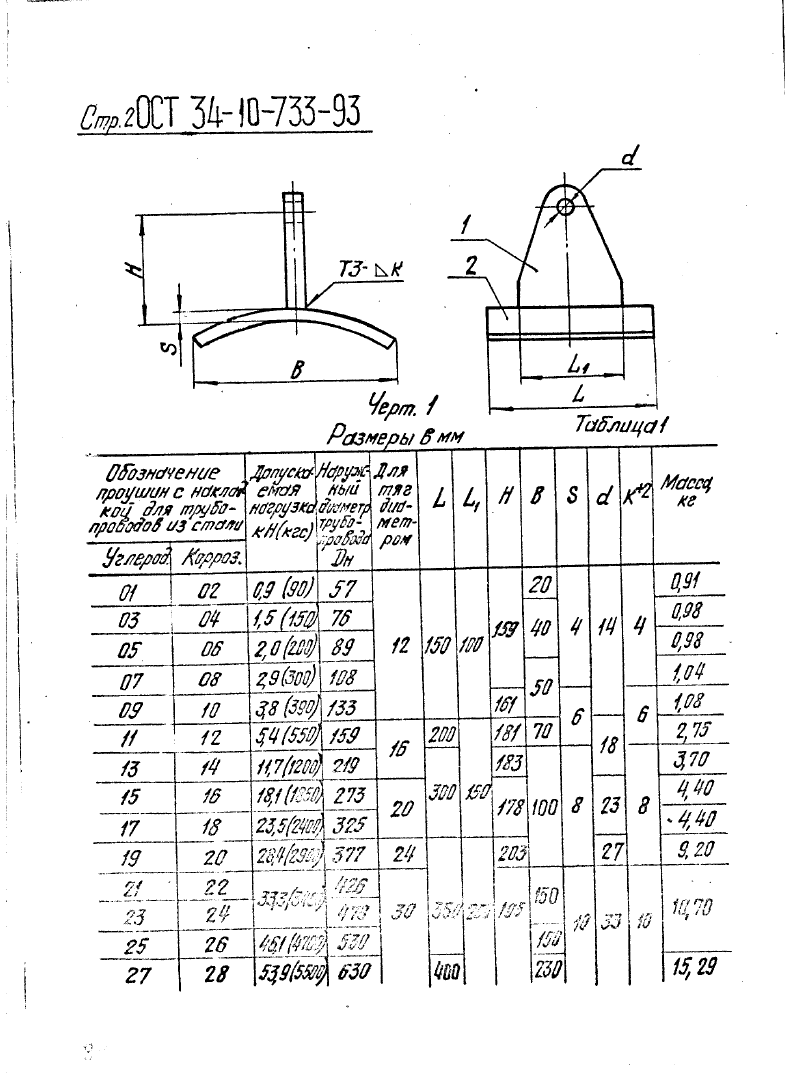 Стр.2 ОСТ 34-10-733-93
d
H
S
B
Т3-⊿К
1
2
L1
L
Черт. 1
Размеры в мм
Таблица 1
Обозначение проушин с наклад кой для трубо- проводов из стали
Углерод. Корроз.
Допуска- емая нагрузка кН(кгс)
Наруж- ный диаметр трубо- провода Dн
Для тяг диа- мет- ром
L L1 H B S d K+2
Масса, кг
01 02 0,9 (90) 57 12 150 100 159 20 4 14 4 0,91
03 04 1,5 (150) 76 40 0,98
05 06 2,0 (200) 89 0,98
07 08 2,9 (300) 108 50 1,04
09 10 3,8 (390) 133 161 6 6 1,08
11 12 5,4 (550) 159 16 200 150 181 70 18 2,75
13 14 11,7 (1200) 219 300 183 100 8 8 3,70
15 16 18,1 (1850) 273 20 178 23 4,40
17 18 23,5 (2400) 325 4,40
19 20 28,4 (2900) 377 24 203 27 9,20
21 22 426 30 350 195 150 10 33 10 10,70
23 24
25 26 46,1 (4700) 530 150
27 28 53,9 (5500) 630 400 230 15,29